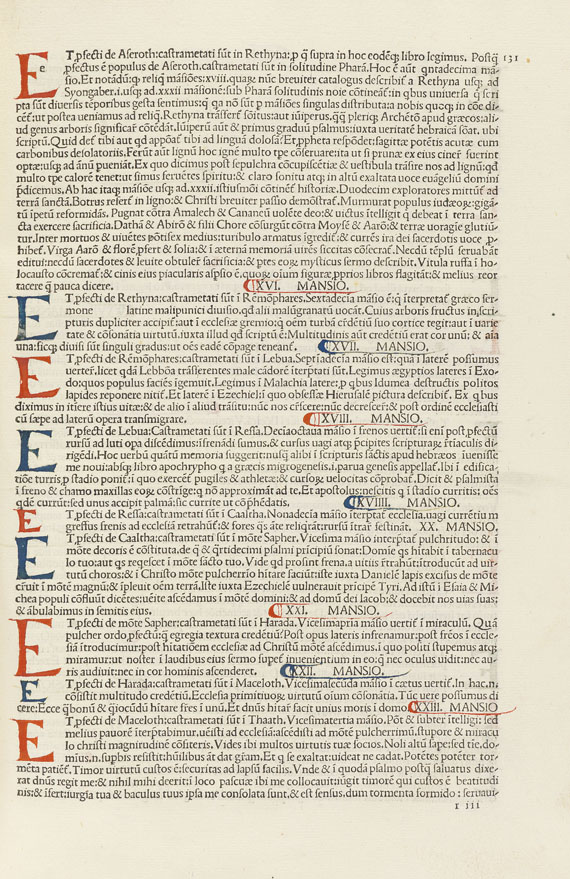 E T,ꝓfecti de Aseroth:castrametati sūt in Rethyna:ꝓ q̄ supra in hoc codēq; libro legimus. Postq̄ 131
e ꝓfectus ē populus de Aseroth.castrametati sūt in solitudine Pharā.Hoc ē aūt qntadecima mā-
sio.Et notādū:q; reliq̄ māsiōes:xviii.quaꝝ nūc breuiter catalogus describit̄ a Rethyna usq; ad
Syongaber.i.usq; ad.xxxii māsionē:sub Pharā solitudinis noīe cōtineāt̄:in qbus uniuersa q̄ scri
pta sūt diuersis tēporibus gesta sentimus:q; qa nō sūt p māsiōes singulas distributa:a nobis quoq; in cōe di-
cēt̄:ut postea ueniamus ad reliq̄.Rethyna trāsfert̄ sōitus:aut iūiperus,qd̄ pleriq; Archētō apud græcos:ali-
ud genus arboris significar̄ cōtēdāt.Iūiperū aūt & primus graduū psalmus:iuxta ueritatē hebraicā sōat. ubi
scriptū.Quid det̄ tibi aut qd appōat̄ tibi ad linguā dolosā?.Et,ppheta respōdet:sagittæ potētis acutæ cum
carbonibus desolatoriis.Ferūt aūt lignū hoc ignē multo tpe cōseruare:ita ut si prunæ ex eius ciner̄ fuerint
optæ:usq; ad ānū pueniāt.Ex quo dicimus post sepulchra cōcupiscētiæ & uestibula trāsire nos ad lignū:qd
multo tpe calorē tenet:ut simus feruētes spiritu:& claro sonitu atq; in altū exaltata uoce euāgeliū domini
p̄dicemus.Ab hac itaq; māsiōe usq; ad.xxxii.istiusmōi cōtinēt̄ historiæ.Duodecim exploratores mittūt̄ ad
terrā sanctā.Botrus refert̄ in ligno:& Christi breuiter passio demōstrat̄.Murmurat populus iudæoꝝ:gigā-
tū īpetū reformidās. Pugnat cōtra Amalech & Cananeū uolēte deo:& uictus ītelligit q̄ debeat ī terra san-
cta exercere sacrificia.Dathā & Abirō & filii Chore cōsurgūt cōtra Moysē & Aarō:& terræ uoragie glutiū-
tur.Inter mortuos & uiuētes pōtifex medius:turibulo armatus īgredit̄:& currēs ira dei sacerdotis uoce p̄-
hibet̄.Virga Aarō & florē,pfert & folia:& ī æternā memoriā uirēs siccitas cōsecrat̄.Necdū tēplū seruabāt
edituī:necdū sacerdotes & leuitæ obtulēt̄ sacrificia:& ptes eoꝝ mysticus sermo describit. Vitula ruffa ī ho-
locausto cōcremat̄:& cinis eius piacularis aspsio ē.quoꝝ oīum figuræ,pprios libros flagitāt:& melius reor
tacere q̄ pauca dicere. XVI. MANSIO.
E T,ꝓfecti de Rethyna:castrametati sūt ī Remōphares.Sextadecia māsio ē:q̄ īterpretat̄ græco ser-
mone latine malipunici diuisio.qd alii malūgranatū uocāt. Cuius arboris fructus in,scri-
pturis dupliciter accipit̄:aut ī ecclesiæ gremio:q̄ oēm turbā crēdētiū suo cortice tegit:aut ī uarie
tate & cōsonātia uirtutū.iuxta illud qd scriptū ē:Multitudinis aūt crēdētiū erat cor unū:& aīa
una:sicq; diuisi sūt singuli gradus:ut oēs eadē cōpage teneant̄. XVII. MANSIO.
E T,ꝓfecti de Remōphares:castrametati sūt ī Lebua.Septīadecia māsio est:quā ī laterē possumus
uertet̄.licet qdā Lebbōa trāsserentes male cādorē īterptati sūt.Legimus ægyptios lateres ī Exo-
do:quos populus faciēs īgemuit.Legimus ī Malachia latere:p qbus Idumea destructis politos
lapides reponere nitit̄.Et laterē ī Ezechiel:ī quo obsessæ Hierusalē pictura describit̄. Ex qbus
diximus in itiere istius uitæ:& de alio ī aliud trāsitu:nūc nos cr̄scere:nūc decrescer̄:& post ordinē ecclesiasti
cū sæpe ad laterū opera transmigrare. XVIII. MANSIO.
E T,ꝓfecti de Lebua:Castrametati sūt ī Ressa.Deciaoctaua māsio ī frenos uertit̄:si ēī post,pfectū
rursū ad luti opa discēdimus:īfrenādi sumus.& cursus uagi atq; p̄cipites scripturaꝝ r̄tiaculis di-
rigēdi.Hoc uerbū quātū memoria suggerit:nusq̄ alibi ī scripturis sāctis apud hebræos iuenisse
me noui:absq; libro apochrypho q a græcis migrogenesis.i.parua genesis appellat̄.Ibi ī edifica-
tiōe turris,p stadio ponit̄:ī quo exercēt̄ pugiles & athletæ:& cursoꝝ uelocitas cōprobat̄.Dicit & psalmista
ī freno & chamo maxillas eoꝝ cōstrīge:q nō approximāt ad te.Et apostolus:nescitis q ī stadio curritis: oēs
qdē currūt:sed unus accipit palmā:sic currite ut cōphēdatis. XVIIII. MANSIO.
E T,ꝓfecti de Ressa:castrametati sūt ī Caaltha.Nouadecia māsio īterptat̄ ecclesia.uagi currētiū m
gressus frenis ad ecclesiā retrahūt̄:& fores qs āte reliqrāt:rursū ītrar̄ festināt. XX. MANSIO.
E T,ꝓfecti de Caaltha:castrametati sūt ī mōte Sapher. Vicesima māsio interptat̄ pulchritudo: & ī
mōte decoris ē cōstituta,de q & qrtidecimi psalmi pricipiū sonat:Domīe qs hitabit ī tabernacu
lo tuo:aut qs reqescet ī mōte sācto tuo. Vide qd prosint frena.a uitiis r̄trahūt̄:itroducūt ad uir-
tutū choros:& ī Christo mōte pulcherrio hitare faciūt:iste iuxta Danielē lapis excisus de mōte
crēuit ī mōtē magnū:& īpleuit oēm terrā.Iste iuxta Ezechielē uulnerauit pricipē Tyri.Ad istū ī Esaia & Mi-
chea populi cōfluūt dicētes:uēite ascēdamus ī mōtē domini:& ad domū dei Iacob:& docebit nos uias suas:
& ābulabimus in semitis eius. XXI. MANSIO.
E T,ꝓfecti de mōte Sapher:castrametati sūt ī Harada.Vicesimaprīa māsio uertit̄ ī miraculū. Quā
pulcher ordo,pfectuū:q̄ egregia textura credētiū?Post opus lateris infrenamur:post frēos ī eccle-
siā itroducimur:post hitatiōem ecclesiæ ad Christū mōtē ascēdimus.ī quo positi stupemus atq;
miramur:ut noster ī laudibus eius sermo supet̄ inuenientium in eo:q̄ nec oculus uidit:nec au-
ris audiuit:nec in cor hominis ascenderet. XXII. MANSIO.
E T,ꝓfecti de Harada:castrametati sūt ī Maceloth.Vicesimasecūda māsio ī cœtus uertit̄. In hac,n.
cōsistit multitudo crēdētiū,Ecclesia primitiuoꝝ:& uirtutū oīum cōsonātia. Tūc uere possumus di
cere:Ecce q̄bonū & q̄iocūdū hitare fr̄es ī unū. Et dn̄us hitar̄ facit unius moris ī domo. XXIII. MANSIO
E T,ꝓfecti de Maceloth:castrametati sūt ī Thaath. Vicesimatertia māsio. Pōt & subter ītelligi: sed
melius pauorē īterptabimur.uēisti ad ecclesiā:ascēdisti ad mōtē pulcherrimū.stupore & miracu
lo christi magnitudinē cōsiteris. Vides ibi multos uirtutis tuæ socios. Noli altū sape:sed tīe.do-
mīus.n.supbis resistit:hūilibus āt dat gr̄am. Et q se exaltat:uideat ne cadat. Potētes potēter tor-
mēta patiēt̄.Timor uirtutū custos ē:securitas ad lapsū facilis. Vnde & ī quodā psalmo postq̄ saluatus dixe-
rat dn̄us regit me:& nihil mihi deerit:ī loco pascuæ ibi me collocauit:iūgit timorē qui custos ē beatitudi
nis:& īfert:uirgīa tua & baculus tuus ipsa me consolata sunt.& est sensus.dum tormenta formido : seruaui-
I III